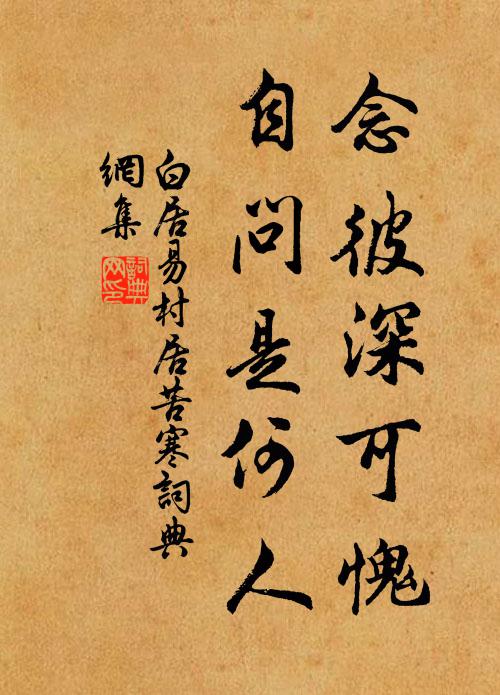 念彼深可愧
自問是何人
白居易村居苦寒詞典
網集
詞典
网印